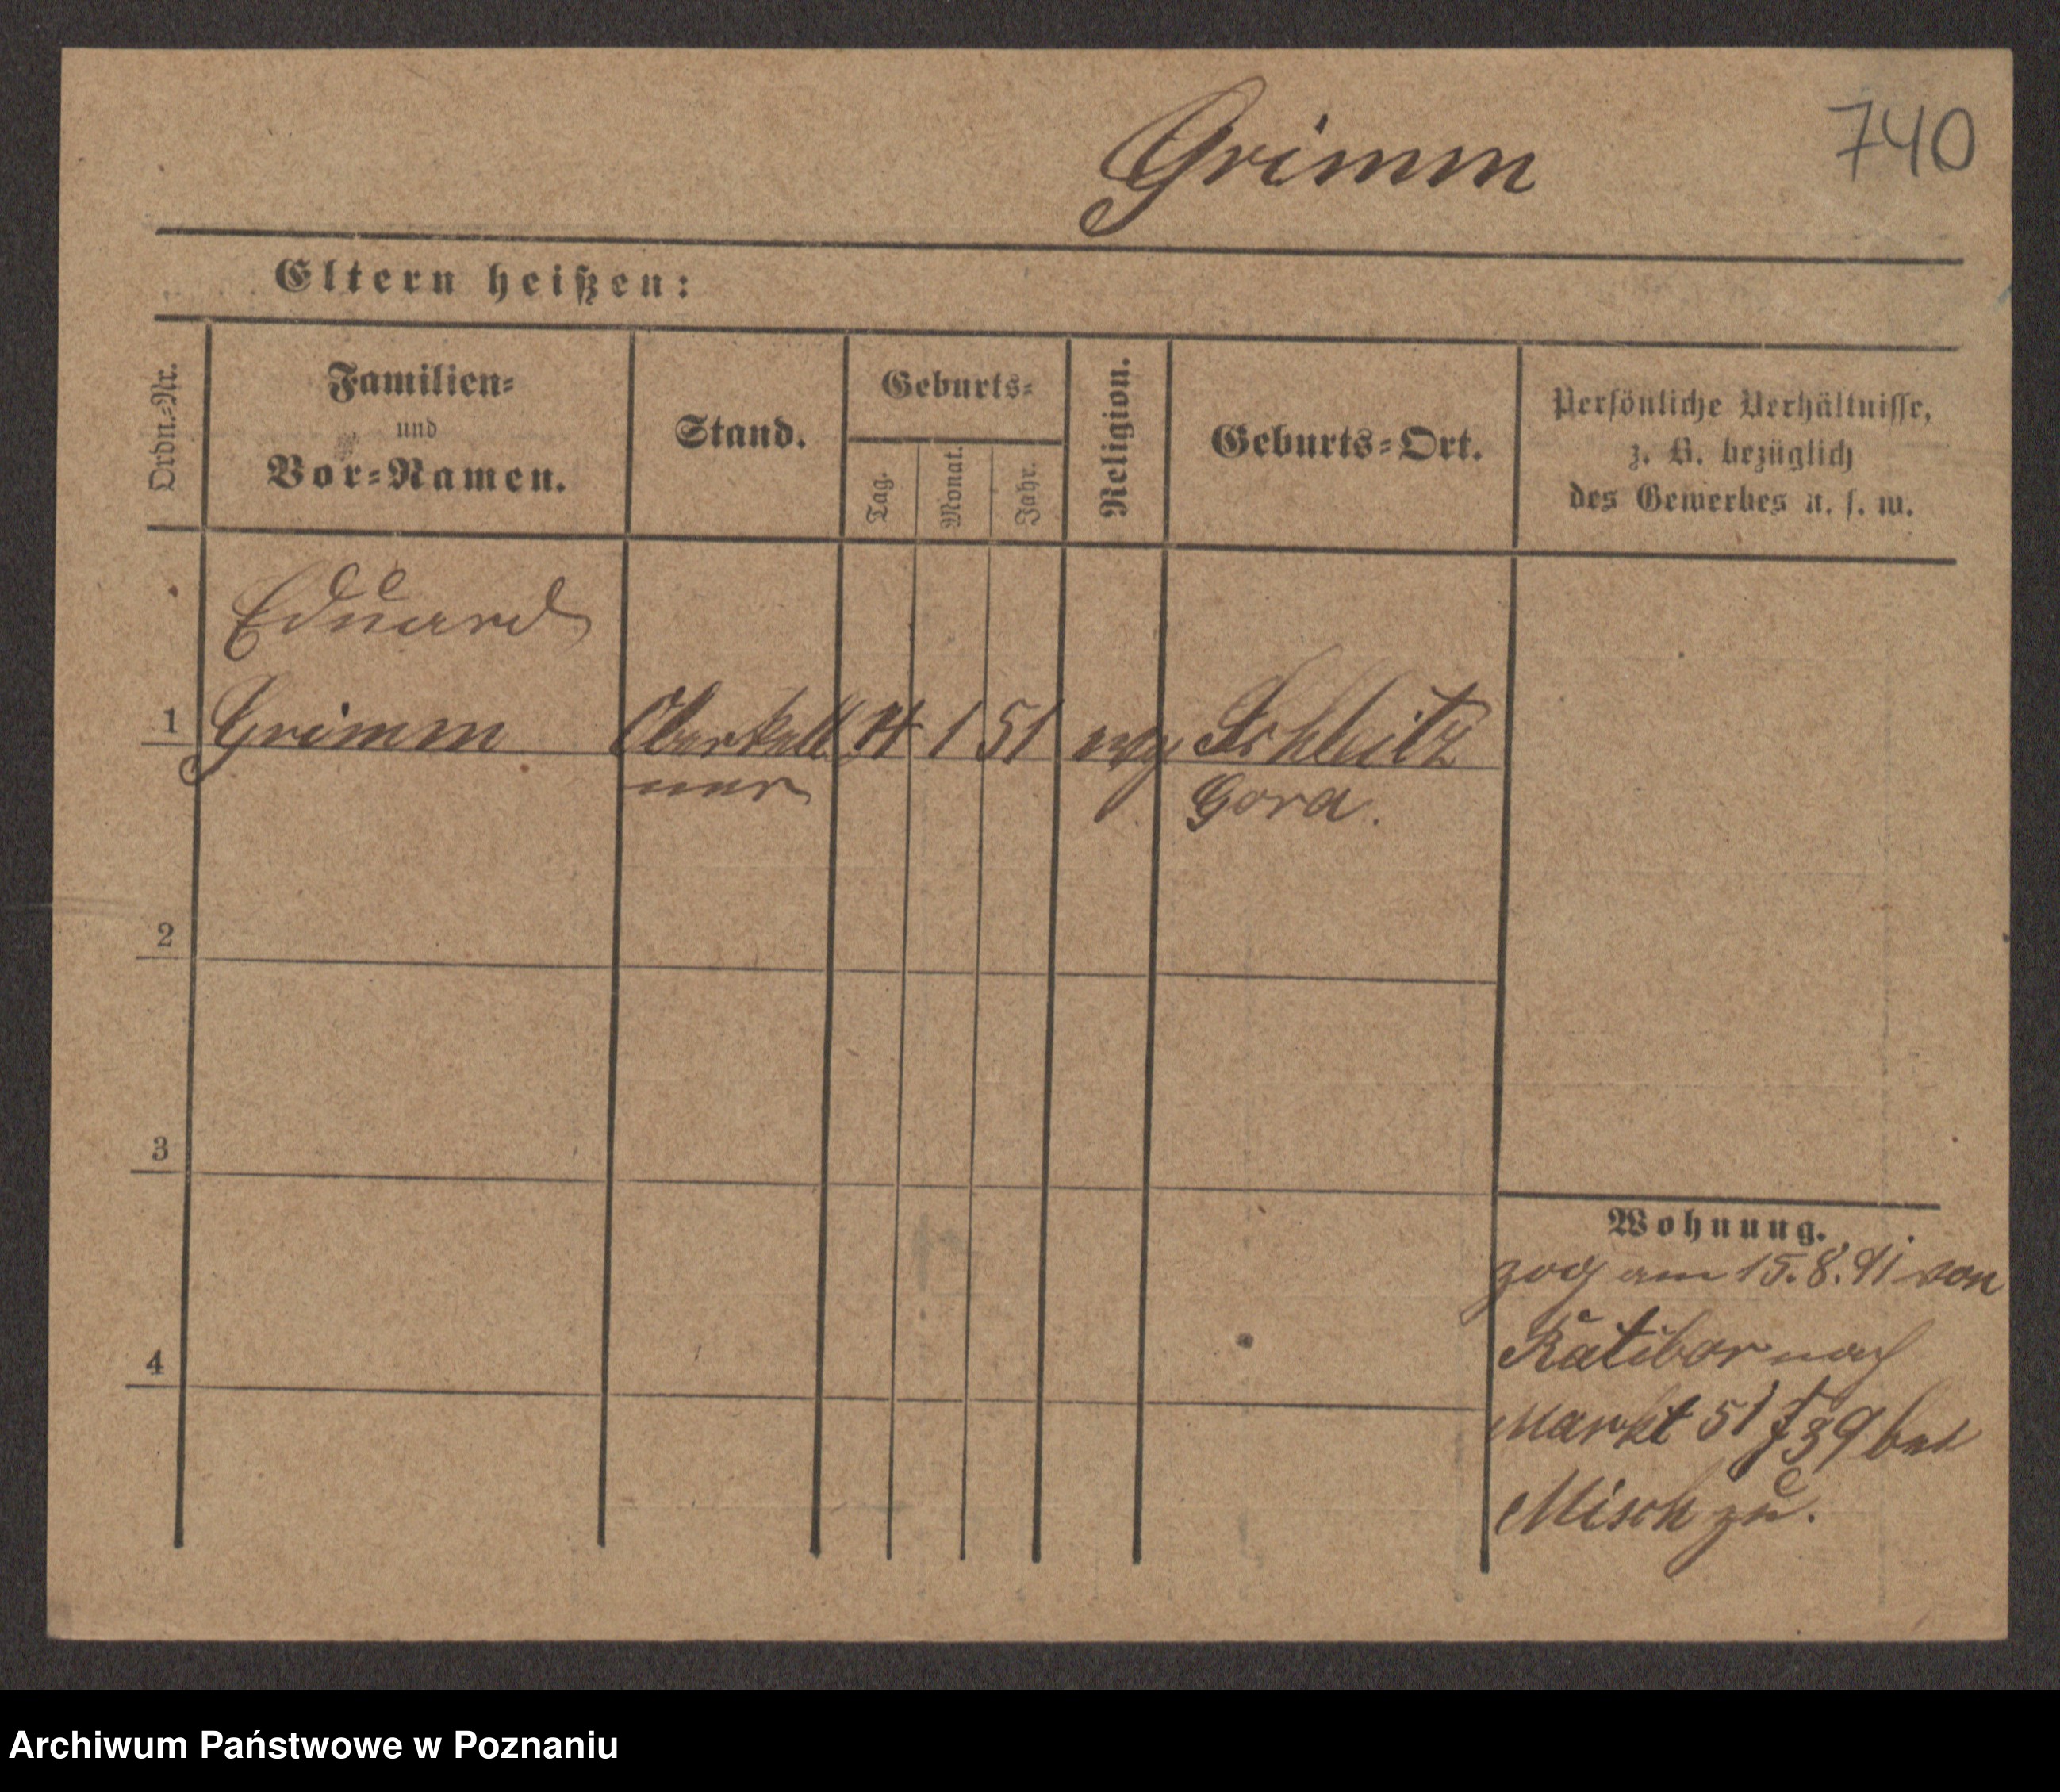 740
Grimm
Eltern heißen:
Ordn.-Nr.
Familien-
und
Vor-Namen.
Stand.
Geburts-
Tag.
Monat.
Jahr.
Religion.
Geburts-Ort.
Persönliche Verhältnisse,
z. B. bezüglich
des Gewerbes u. s. w.
Eduard
1 Grimm Oberkell 14 1 51 evg Schleitz
ner Gera.
2
3
4
Wohnung.
zog am 15.8.91 von
Ratibor nach
Markt 51 39 bei
Misch zu.
Archiwum Państwowe w Poznaniu